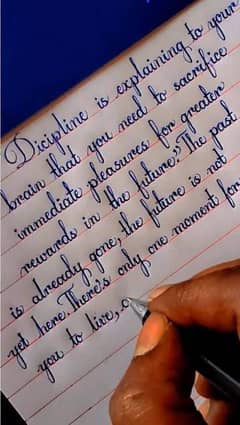 Dicipline is explaining to your
brain that you need to sacrifice
immediate pleasures for greater
rewards in the future." The past
is already gone, the future is not
yet here. There's only one moment for
you to live,